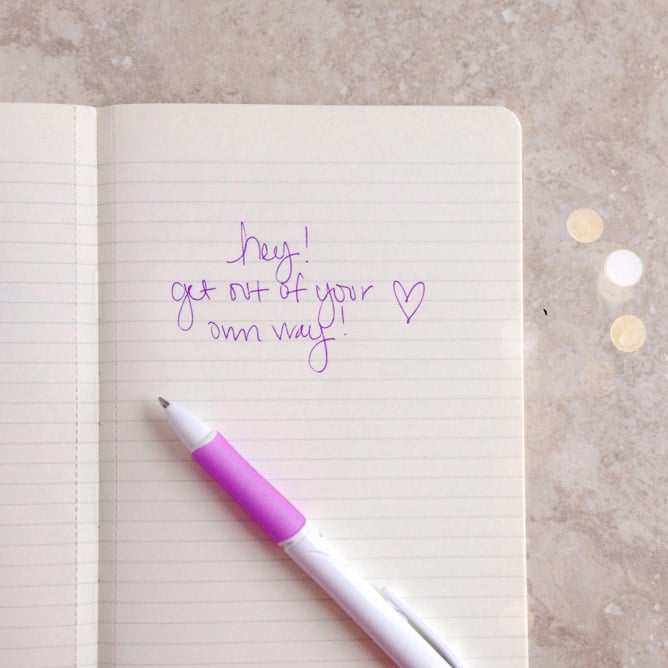 hey!
get out of your
own way!